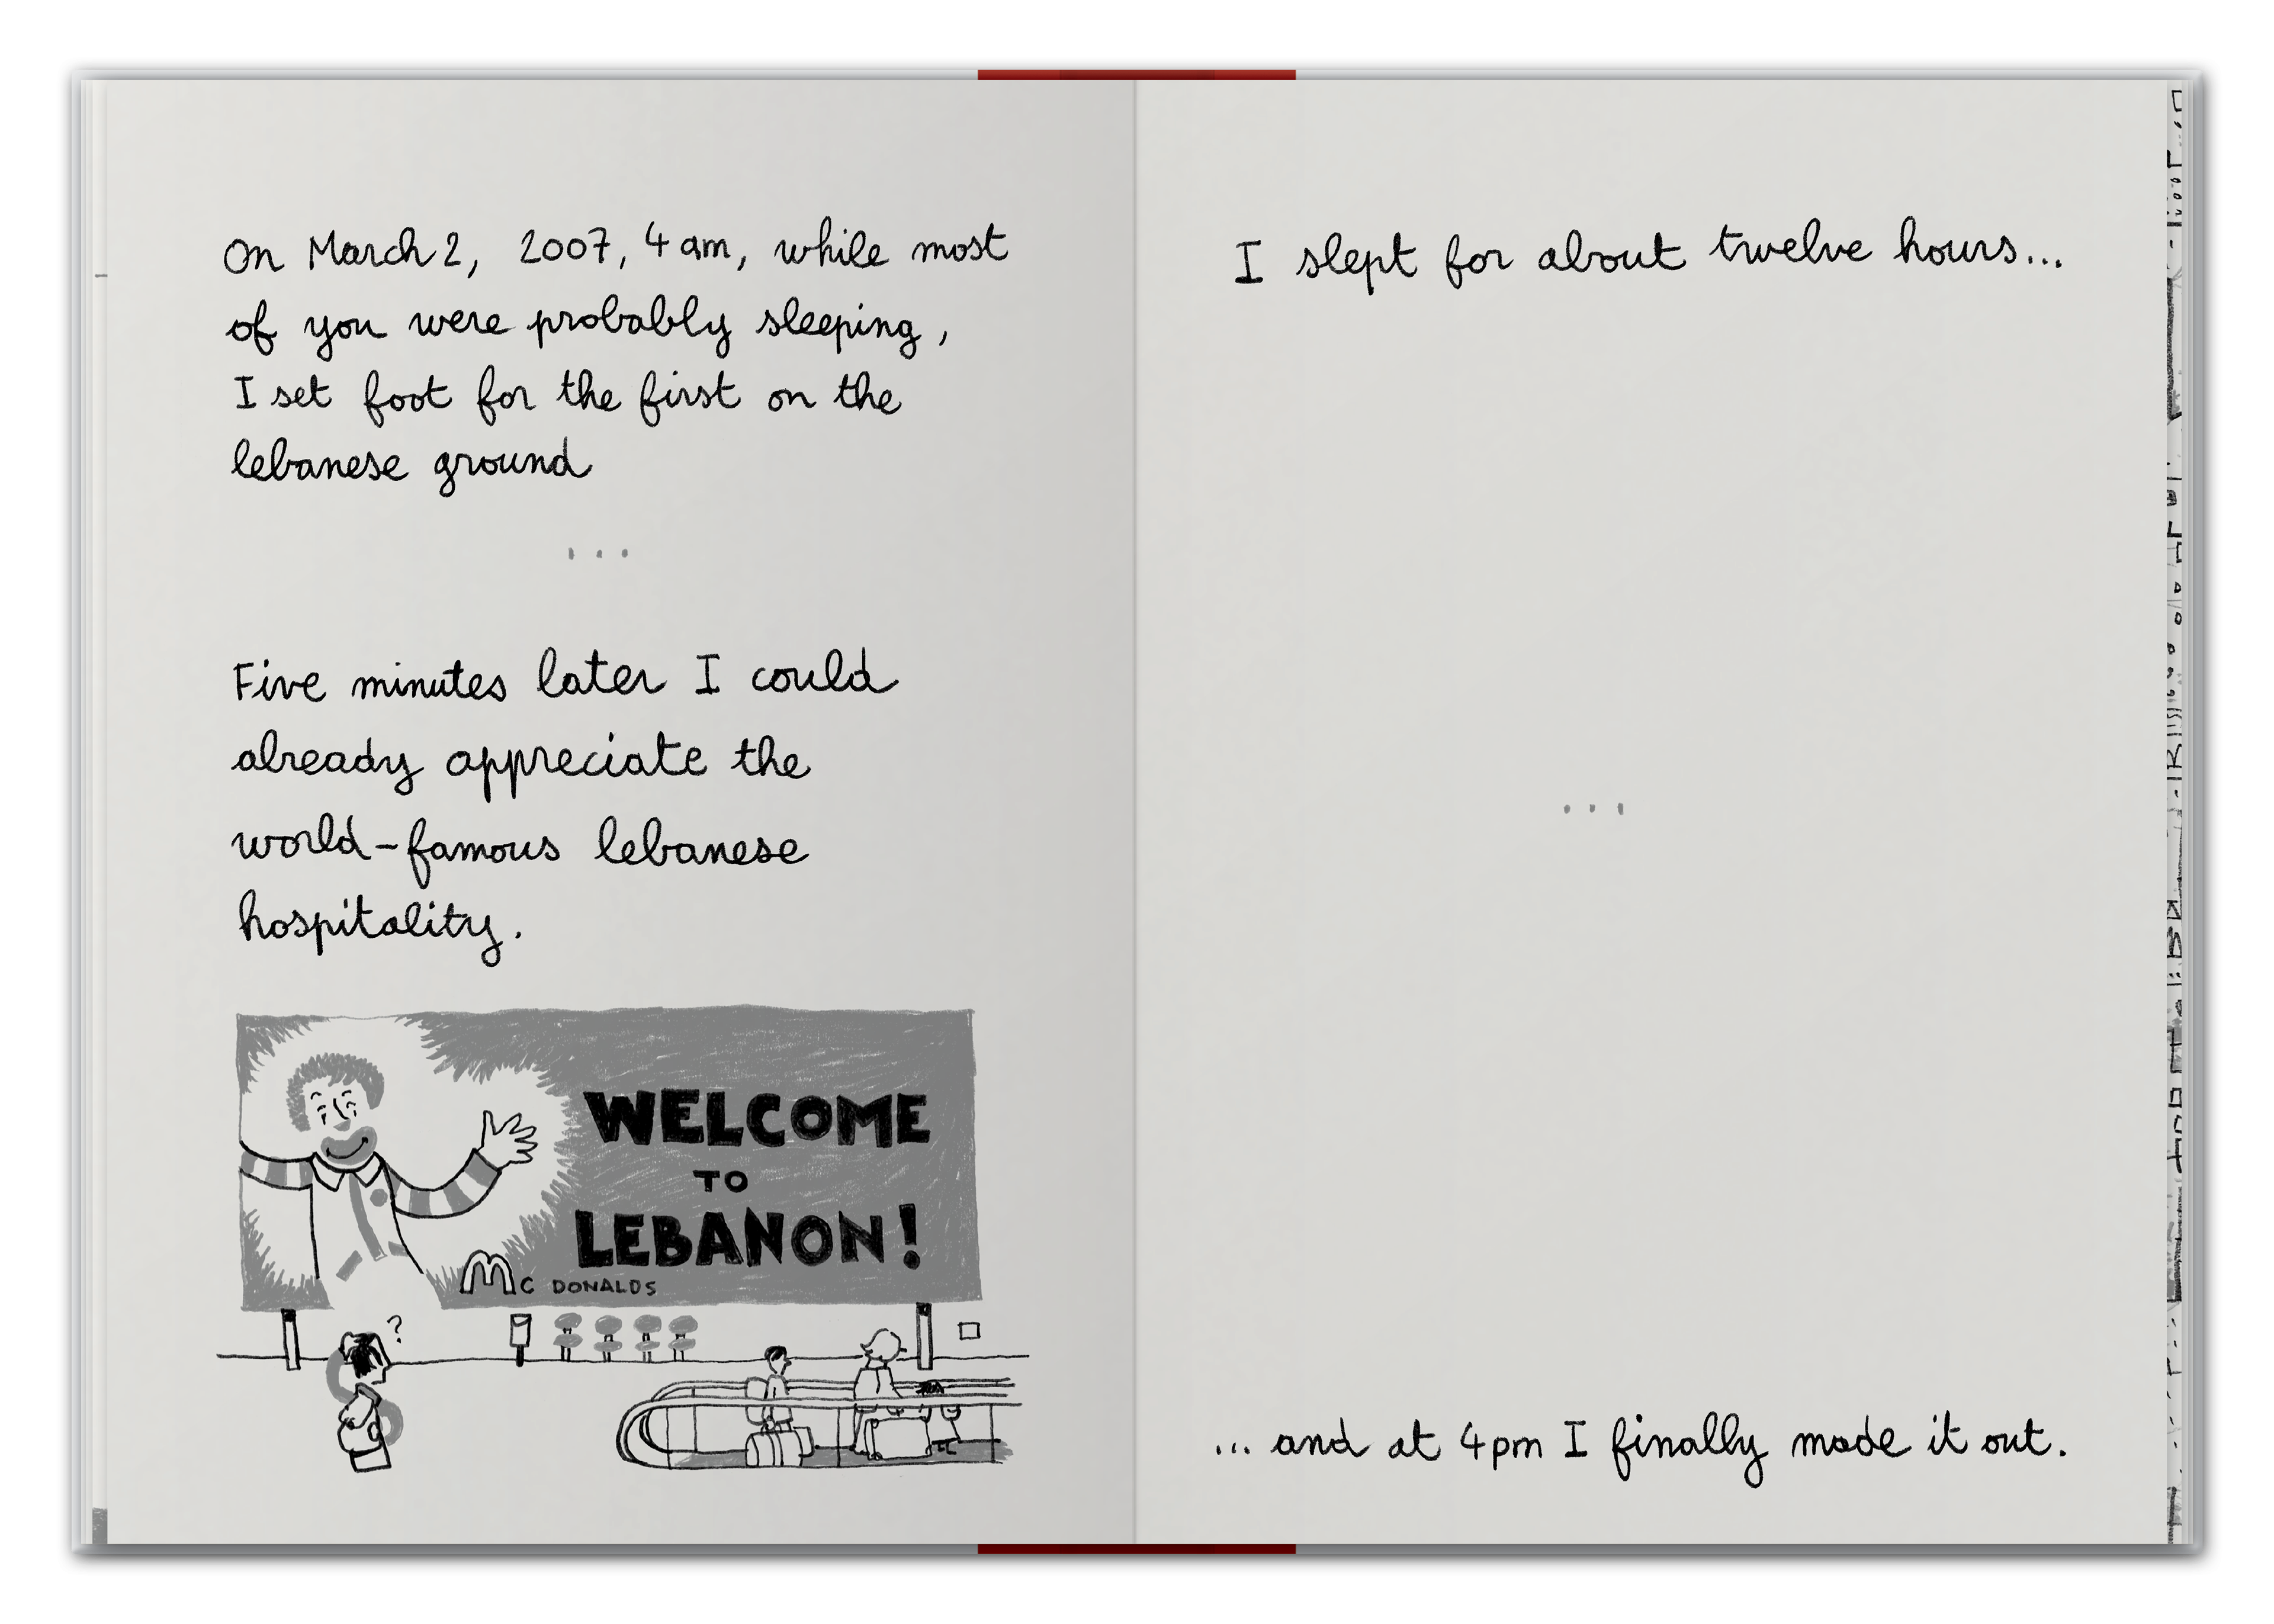 On March 2, 2007, 4 am, while most
of you were probably sleeping,
I set foot for the first on the
lebanese ground
...
Five minutes later I could
already appreciate the
world-famous lebanese
hospitality.
WELCOME
TO
LEBANON!
Mc DONALDS
?
I slept for about twelve hours...
...
... and at 4pm I finally made it out.